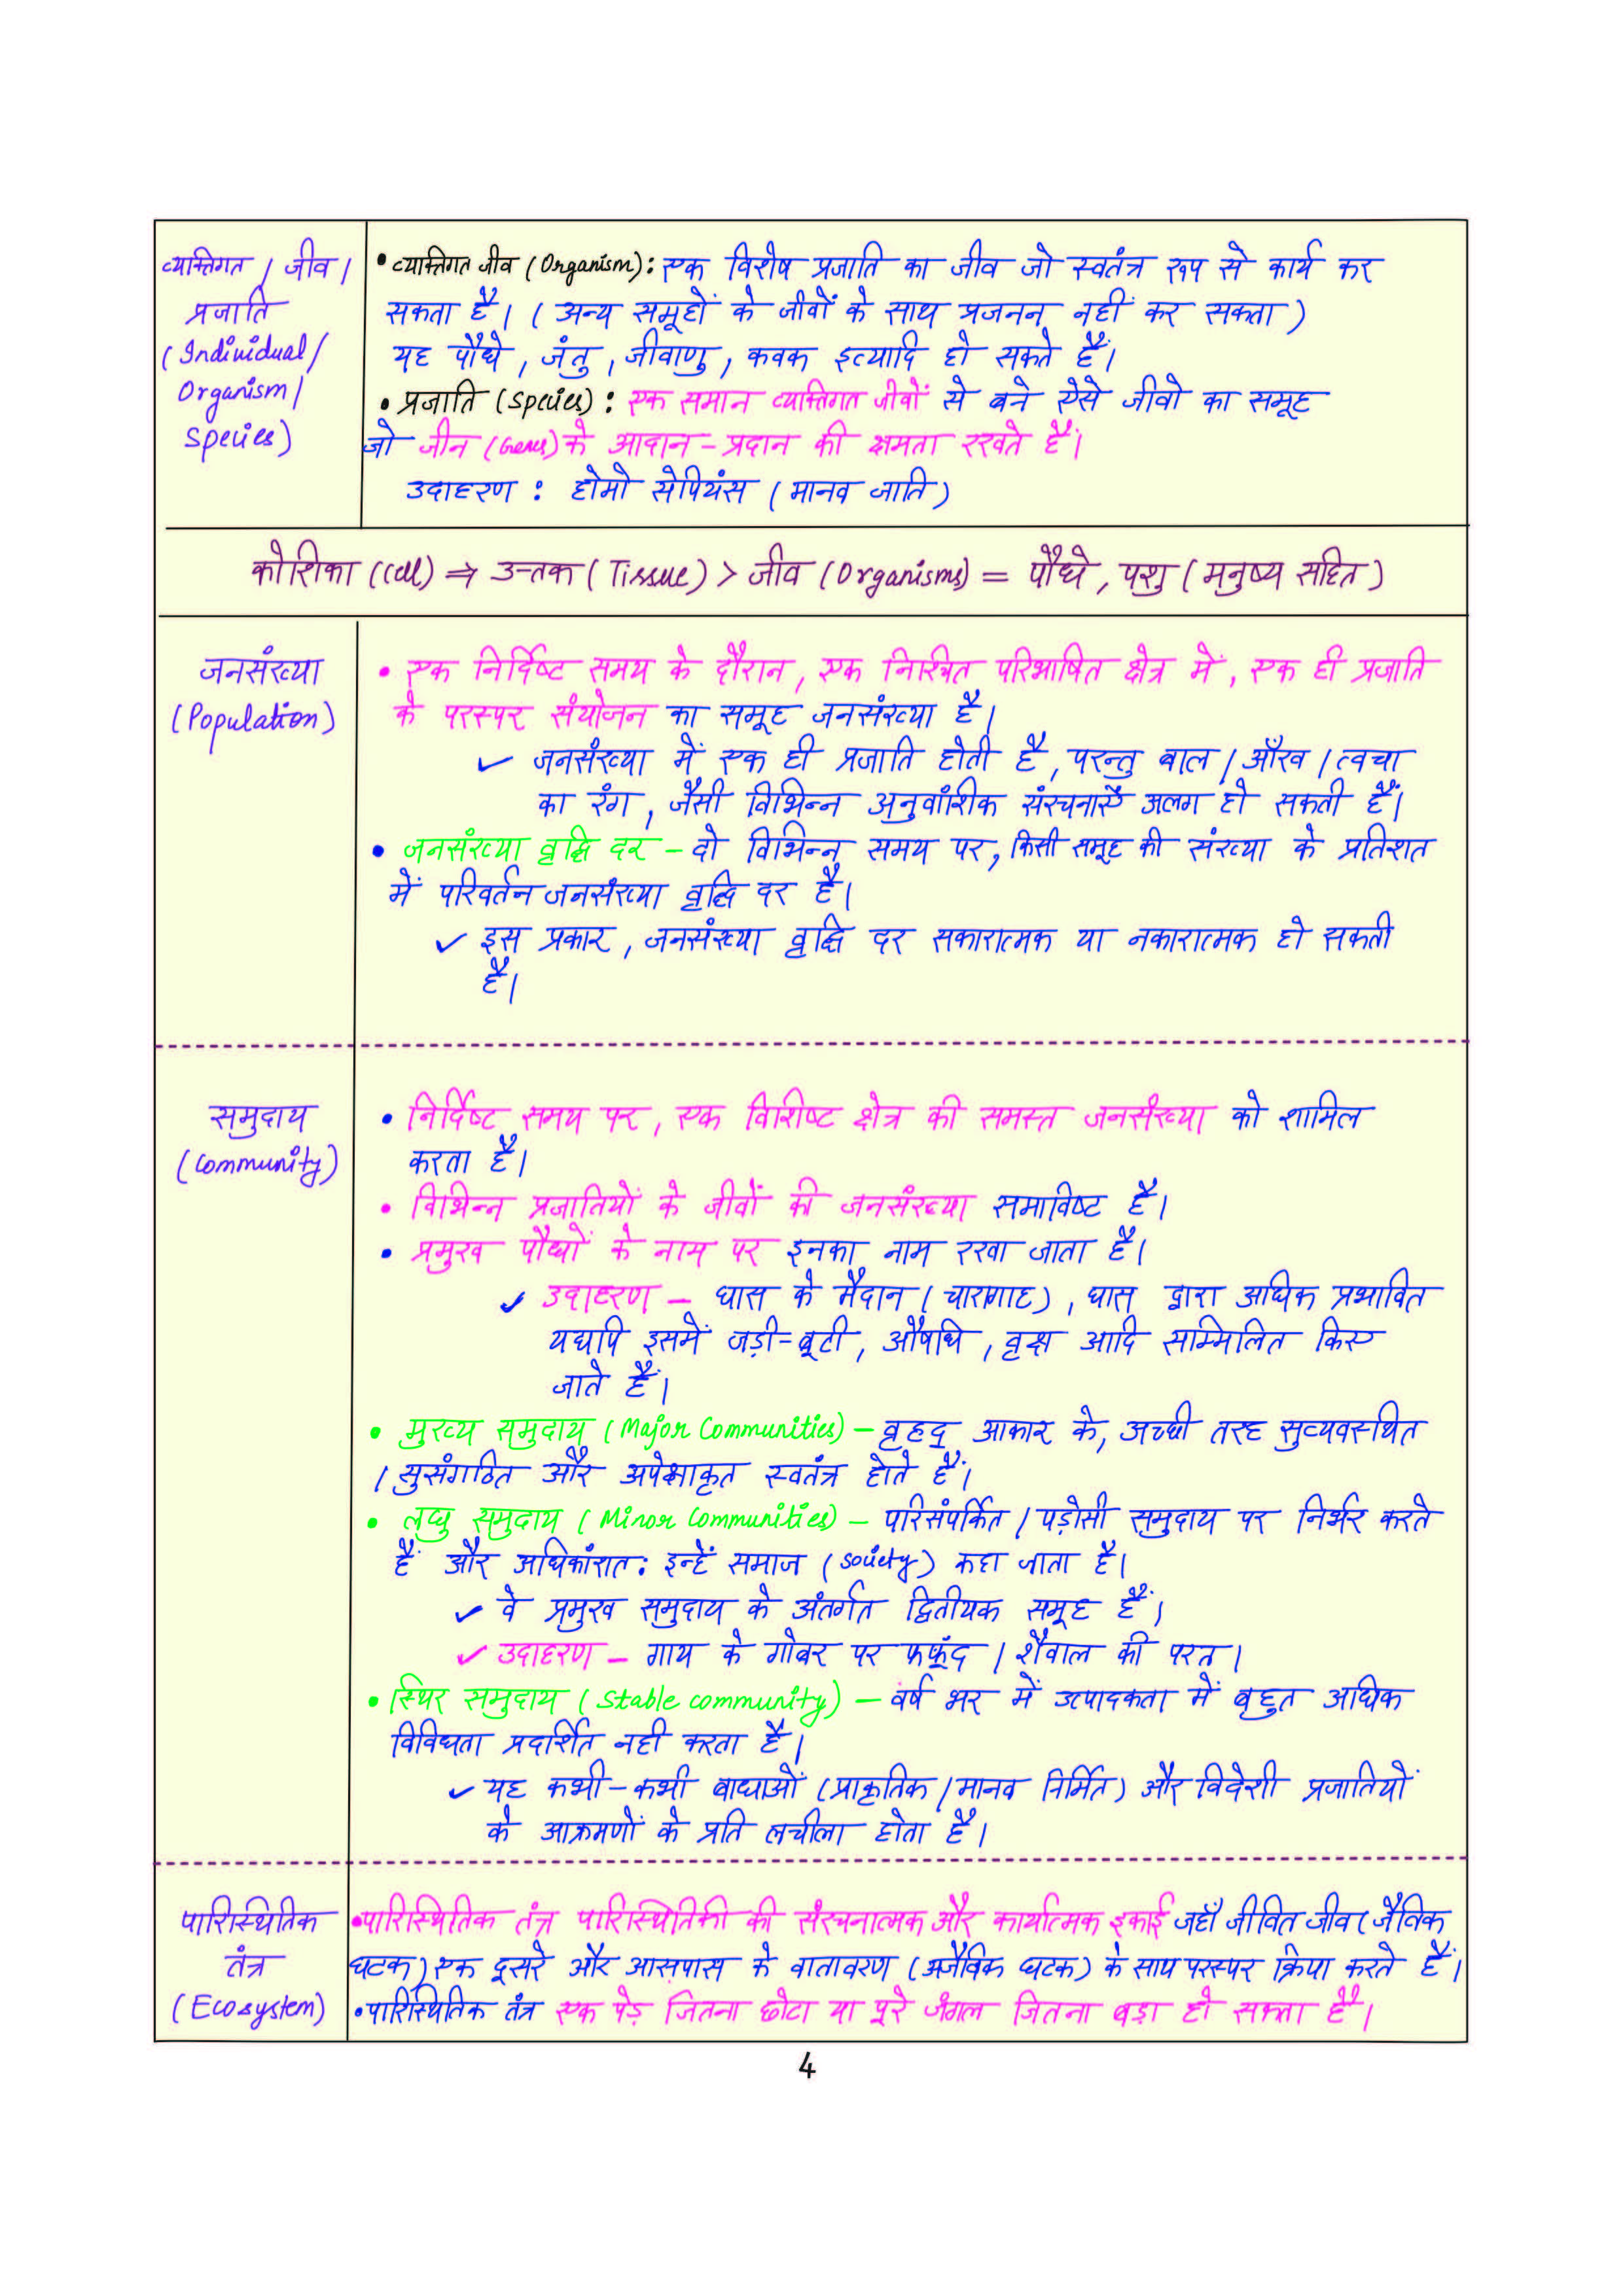 व्यक्तिगत / जीव /
प्रजाति
(Individual/
Organism/
Species)
• व्यक्तिगत जीव (Organism): एक विशेष प्रजाति का जीव जो स्वतंत्र रूप से कार्य कर
सकता है। (अन्य समूहों के जीवों के साथ प्रजनन नहीं कर सकता)
यह पौधे, जंतु, जीवाणु, कवक इत्यादि हो सकते हैं।
• प्रजाति (Species): एक समान व्यक्तिगत जीवों से बने ऐसे जीवो का समूह
जो जीन (Genes) के आदान-प्रदान की क्षमता रखते हैं।
उदाहरण : होमो सेपियंस (मानव जाति)
कोशिका (Cell) ⇒ उत्तक (Tissue) > जीव (Organisms) = पौधे, पशु (मनुष्य सहित)
जनसंख्या
(Population)
• एक निर्दिष्ट समय के दौरान, एक निश्चित परिभाषित क्षेत्र में, एक ही प्रजाति
के परस्पर संयोजन का समूह जनसंख्या है।
✓ जनसंख्या में एक ही प्रजाति होती है, परन्तु बाल / आँख / त्वचा
का रंग, जैसी विभिन्न अनुवांशिक संरचनाएँ अलग हो सकती हैं।
• जनसंख्या वृद्धि दर - दो विभिन्न समय पर, किसी समूह की संख्या के प्रतिशत
में परिवर्तन जनसंख्या वृद्धि दर है।
✓ इस प्रकार, जनसंख्या वृद्धि दर सकारात्मक या नकारात्मक हो सकती
है।
समुदाय
(Community)
• निर्दिष्ट समय पर, एक विशिष्ट क्षेत्र की समस्त जनसंख्या को शामिल
करता है।
• विभिन्न प्रजातियों के जीवों की जनसंख्या समाविष्ट है।
• प्रमुख पौधों के नाम पर इनका नाम रखा जाता है।
✓ उदाहरण - घास के मैदान (चारागाह), घास द्वारा अधिक प्रभावित
यद्यपि इसमें जड़ी-बूटी, औषधि, वृक्ष आदि सम्मिलित किए
जाते हैं।
• मुख्य समुदाय (Major Communities) - वृहद् आकार के, अच्छी तरह सुव्यवस्थित
/ सुसंगठित और अपेक्षाकृत स्वतंत्र होते हैं।
• लघु समुदाय (Minor Communities) - परिसंपर्कित / पड़ोसी समुदाय पर निर्भर करते
हैं और अधिकांशत: इन्हें समाज (Society) कहा जाता है।
✓ वे प्रमुख समुदाय के अंतर्गत द्वितीयक समूह हैं।
✓ उदाहरण - गाय के गोबर पर फफूंद / शैवाल की परत।
• स्थिर समुदाय (Stable community) - वर्ष भर में उत्पादकता में बहुत अधिक
विविधता प्रदर्शित नही करता है।
✓ यह कभी-कभी बाधाओं (प्राकृतिक / मानव निर्मित) और विदेशी प्रजातियों
के आक्रमणों के प्रति लचीला होता है।
पारिस्थितिक
तंत्र
(Ecosystem)
• पारिस्थितिक तंत्र पारिस्थितिकी की संरचनात्मक और कार्यात्मक इकाई जहाँ जीवित जीव (जैविक
घटक) एक दूसरे और आसपास के वातावरण (अजैविक घटक) के साथ परस्पर क्रिया करते हैं।
• पारिस्थितिक तंत्र एक पेड़ जितना छोटा या पूरे जंगल जितना बड़ा हो सकता है।
4